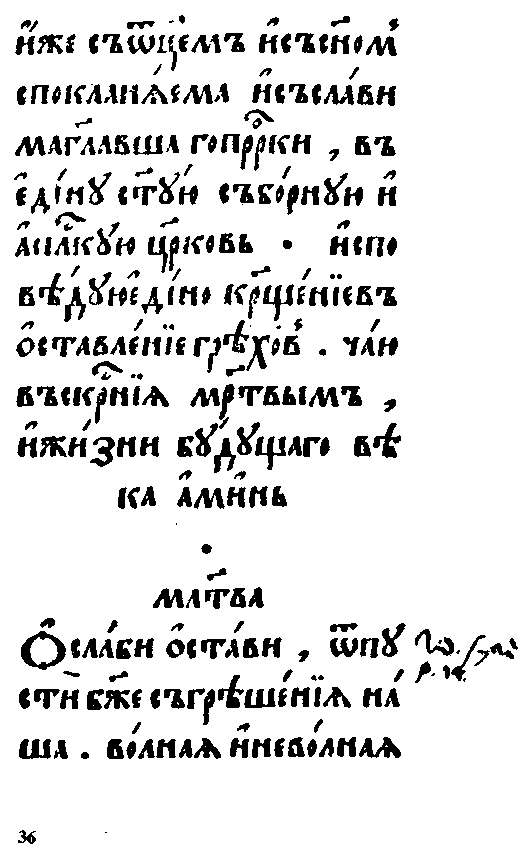 и҆́же съѿц҃емъ и҆съсн҃омъ
спокланѧ́ема и҆съсла́ви
маг҃лавша гопрⷪ҇рки , въ
є҆ди́ну ст҃ꙋю събо́рнꙋю и҆
а҆пⷭ҇лкꙋю цр҃ковь · и҆спо
вѣ́дꙋює҆ди́но крⷳ҇ще́нїевъ
ѡ҆ставле́нїе грѣхо́въ . ча́ю
въскрⷭ҇нїѧ мр҃твымъ ,
и҆жи́зни бꙋ́дꙋщаго вѣ
ка а҆ми́нь
·
мл҃тва
Ѻ҆сла́би ѻ҆ста́ви , ѿпꙋ
сти̇ бж҃е съгрѣше́нїѧ на́
ша . во́лнаꙗ и҆нево́лнаꙗ
36